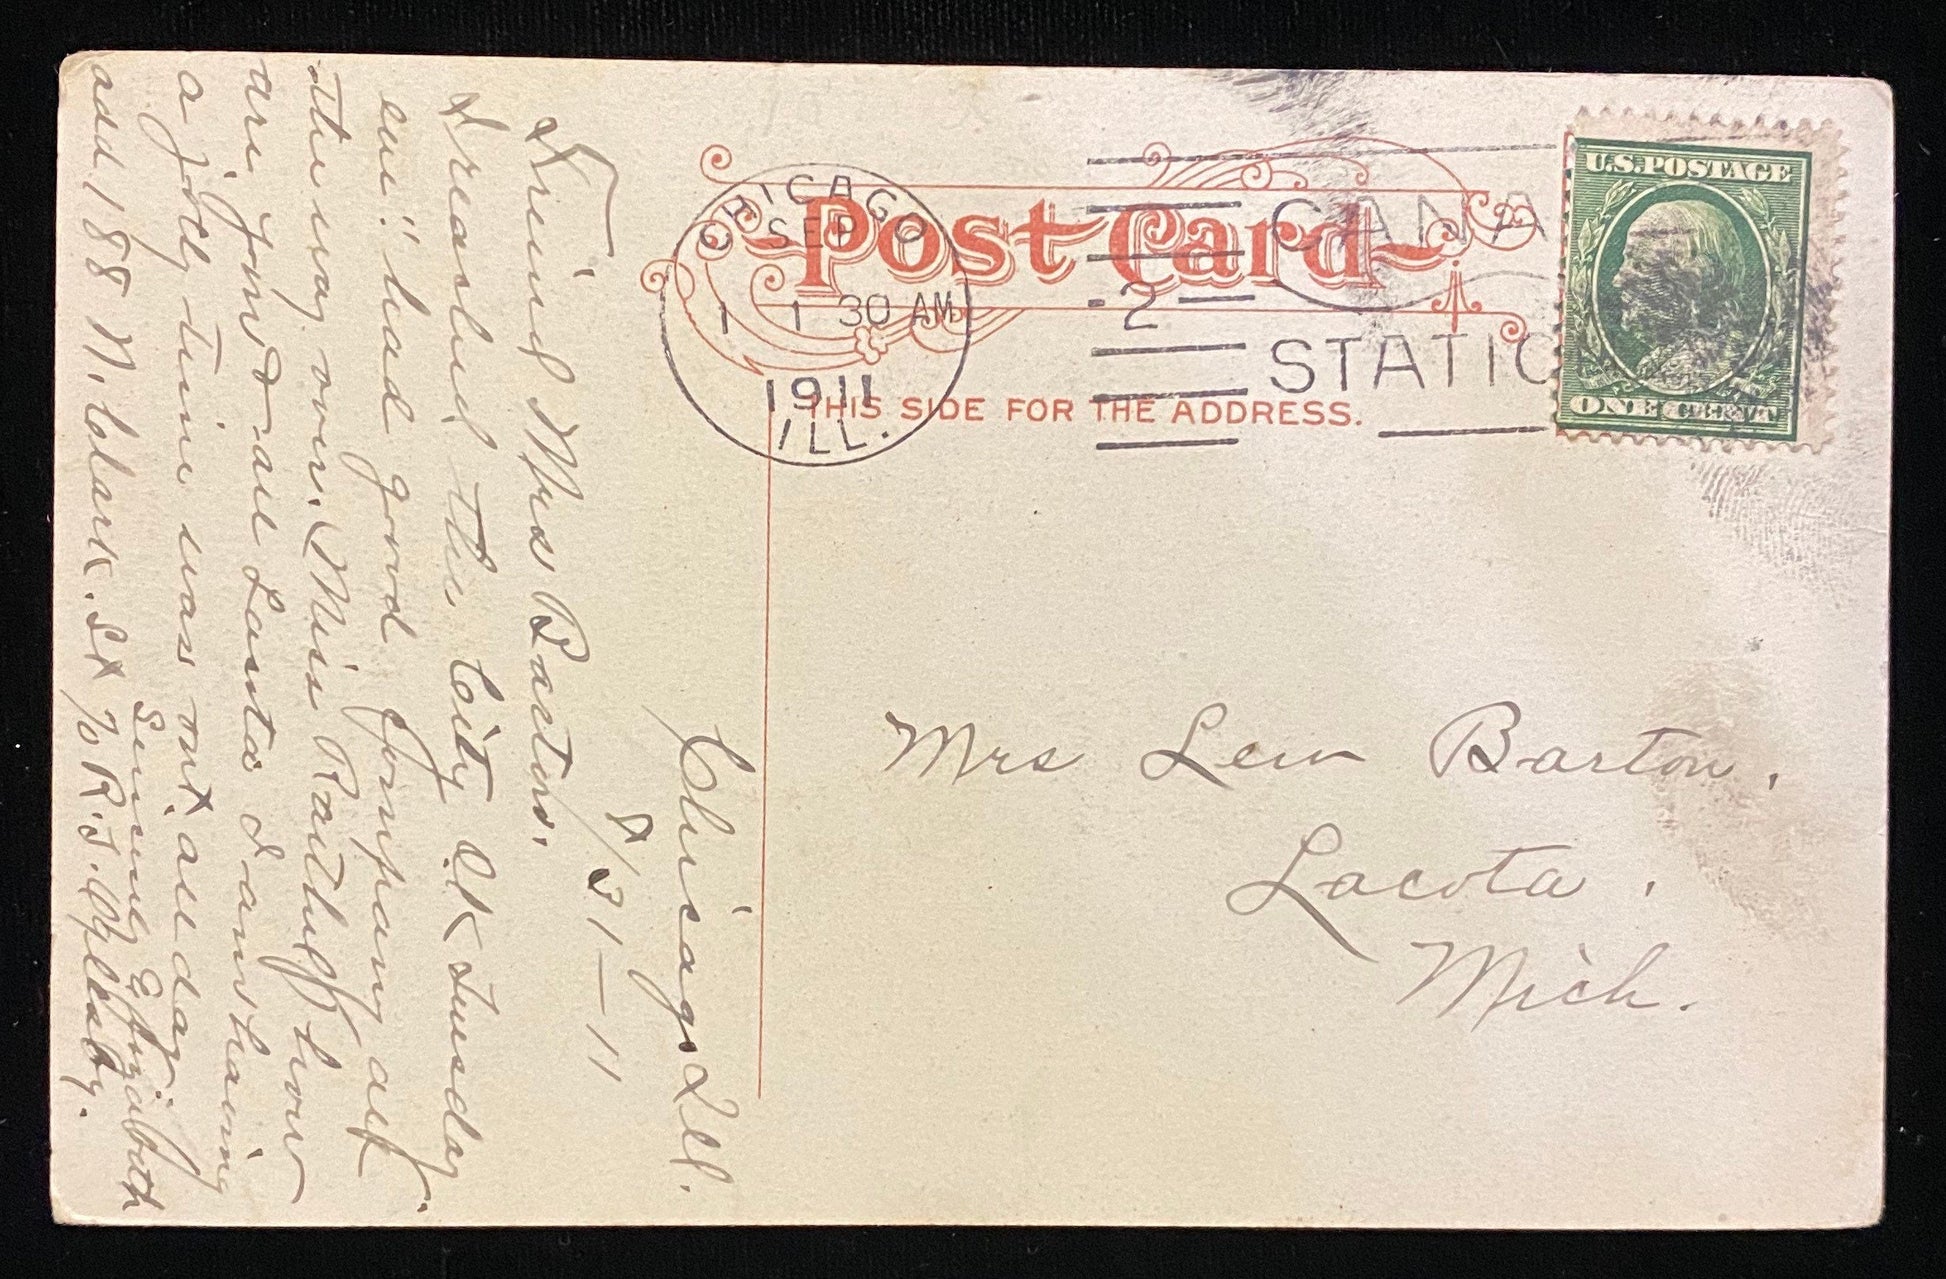 CHICAGO
SEP
1 1 30 AM
1911
ILL.
2
CANA
STATIO
Post Card
THIS SIDE FOR THE ADDRESS.
U.S. POSTAGE
ONE CENT
Mrs Lew Barton,
Lacota,
Mich.
Chicago Ill.
8/31-11
Friend Mrs Barton,
Reached the City OK Tuesday
eve" had good Company all
the way over. Miss Ratliff how
are you & all Lantos I am having
a jolly time was out all day
Sincerely Elizabeth
add 188 N. Clark. St % R.J. Oglesby.